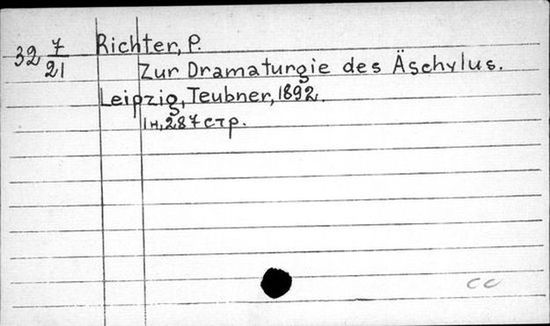 32 7/21 Richter, P.
Zur Dramaturgie des Äschylus.
Leipzig, Teubner, 1892.
1н, 287 стр.
cc